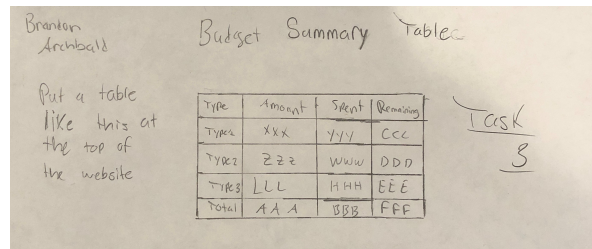 Branton
Archbald
Budget Summary Table
Put a table
like this at
the top of
the website
Type Amount Spent Remaining
Type1 XXX YYY CCC
Type2 ZZZ WWW DDD
Type3 LLL HHH EEE
Total AAA BBB FFF
Task
3